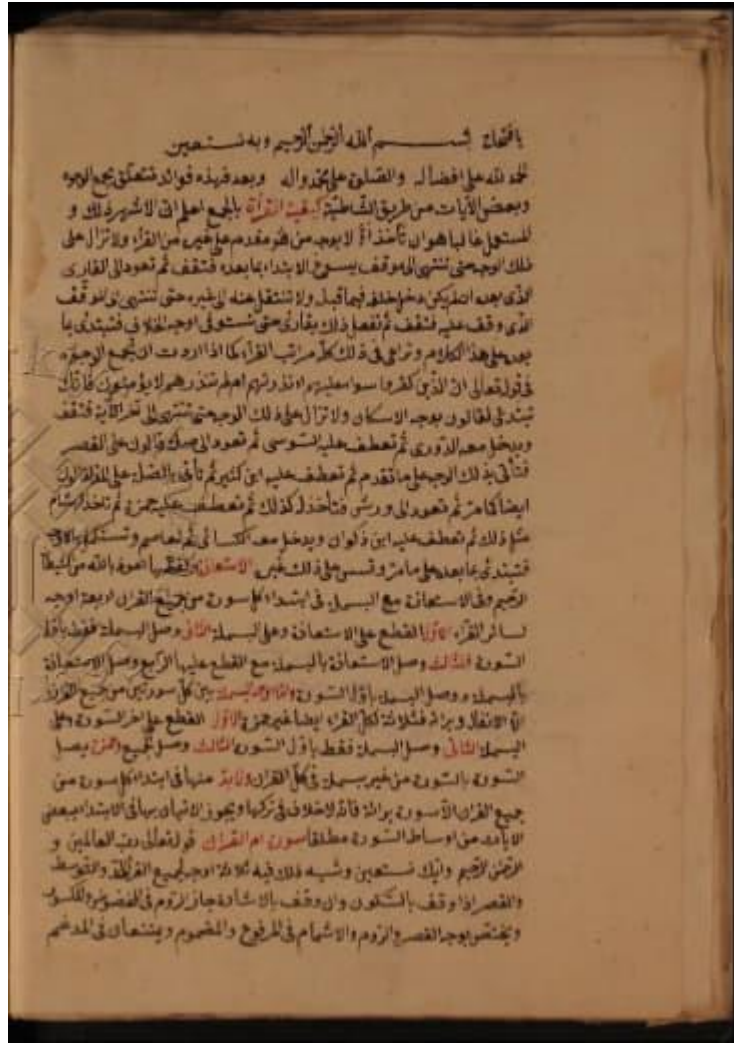 يا فتاح بسم الله الرحمن الرحيم وبه نستعين
الحمد لله على افضاله والصلوة على محمد واله وبعد فهذه فوائد تتعلق بجمع الوجوه
وبعض الآيات من طريق الشاطبية كيفية القرأة بالجمع اعلم ان الاشهر في ذلك و
المستعمل غالبا هو ان تأخذ اولا بوجه من هو مقدم على غيره من القراء ولا تزال على
ذلك الوجه حتى تنتهى الى موقف يسوغ الابتداء بما بعده فتقف ثم تعود الى القارى
الذى بعده ان لم يكن دخل خلفه فيما قبل ولا تنتقل عنه الى غيره حتى تنتهى الى الموقف
الذى وقف عليه فتقف ثم تفعل ذلك بقارئ حتى تستوفى اوجه الخلاف فتبتدئ بما
بعد على هذا الكلام وتراعى فى ذلك كله مراتب القراء كما اذا اردت ان تجمع الوجوه
فى قوله تعالى ان الذين كفروا سواء عليهم ءانذرتهم ام لم تنذرهم لا يؤمنون فانك
تبتدئ لقالون بوجه الاسكان ولا تزال على ذلك الوجه حتى تنتهى الى آخر الآية فتقف
ويدخل معه الدورى ثم تعطف عليه السوسى ثم تعود الى صلة قالون على القصر
فتأتى بذلك الوجه على ما تقدم ثم تعطف عليه ابن كثير ثم تأتى بالصلة على المد لقالون
ايضا كما مر ثم تعود الى ورش فتأخذ له كذلك ثم تعطف عليه حمزة ثم تاخذ لهشام
مثل ذلك ثم تعطف عليه ابن ذكوان ويدخل معه الكسائى ثم لعاصم وتستكمل
فتبتدئ بما بعد على ما مر وقس على ذلك غيره الاستعاذة ولفظها اعوذ بالله من الشيطان
الرجيم وفى الاستعاذة مع البسملة فى ابتداء كل سورة من جميع القران اربعة اوجه
لسائر القراء الاول القطع على الاستعاذة وعلى البسملة الثانى وصل البسملة فقط باول
السورة الثالث وصل الاستعاذة بالبسملة مع القطع عليها الرابع وصل الاستعاذة
بالبسملة ووصل البسملة باول السورة واما اوجه البسملة بين كل سورتين من جميع القران
الا الانفال وبراءة فثلاثة لكل القراء ايضا غير حمزة الاول القطع على اخر السورة وعلى
البسملة الثانى وصل البسملة فقط باول السورة الثالث وصل الجميع وحمزة يصل
السورة بالسورة من غير بسملة فى كل القران ولا بد منها فى ابتداء كل سورة من
جميع القران الا سورة براءة فانه لا خلاف فى تركها ويجوز الاتيان بها فى الابتداء ببعض
الآيات من اوساط السورة مطلقا سورة ام القران قوله تعالى رب العالمين و
الرحمن الرحيم واياك نستعين وشبه ذلك فيه ثلاثة اوجه لجميع القراء المد والتوسط
والقصر اذا وقف بالسكون وان وقف بالاشارة جاز الروم فى المخفوض والمكسور
ويختص بوجه القصر والروم والاشمام فى المرفوع والمضموم ويمتنعان فى المدغم